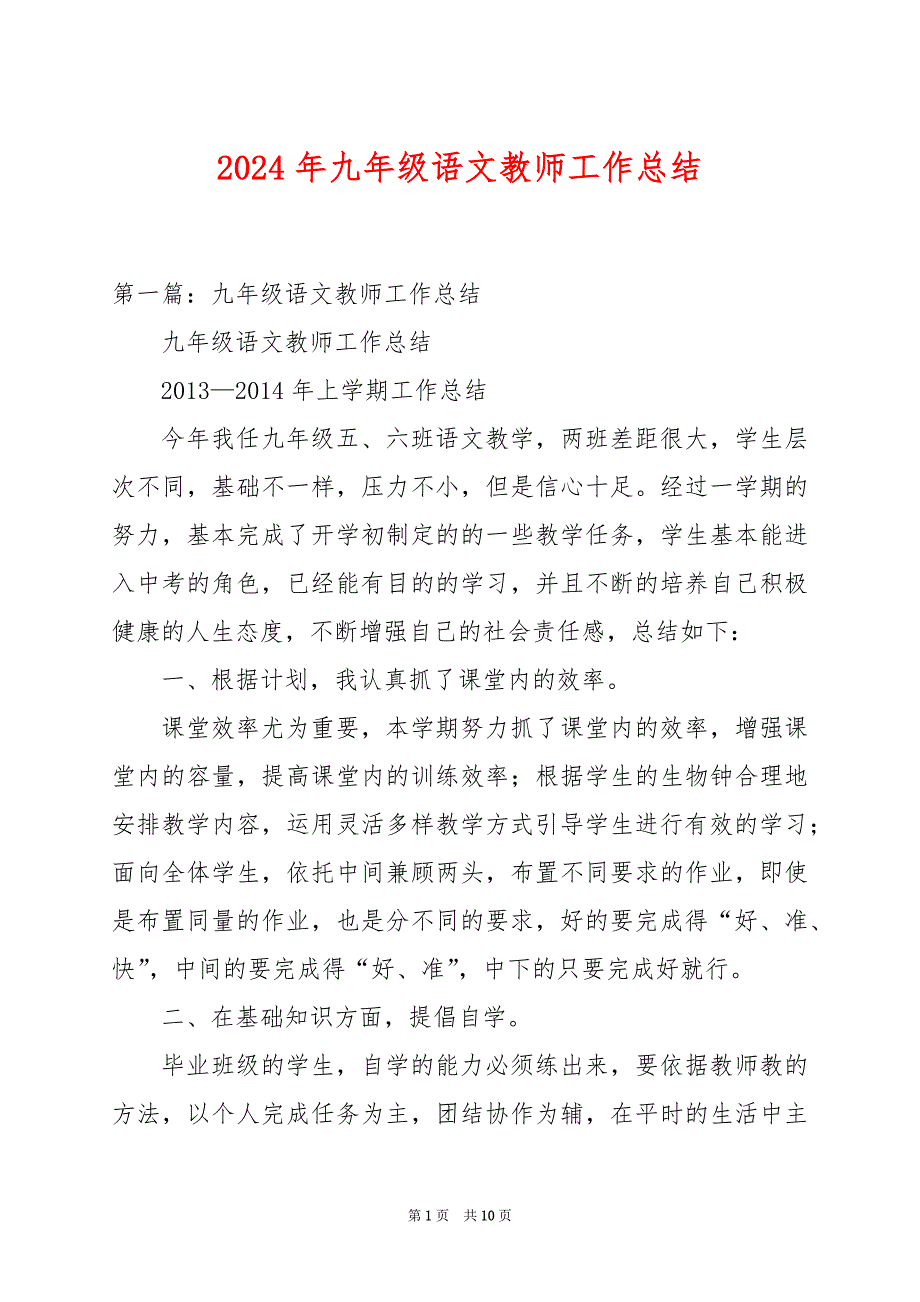 2024年九年级语文教师工作总结
第一篇：九年级语文教师工作总结
九年级语文教师工作总结
2013—2014年上学期工作总结
今年我任九年级五、六班语文教学，两班差距很大，学生层
次不同，基础不一样，压力不小，但是信心十足。经过一学期的
努力，基本完成了开学初制定的的一些教学任务，学生基本能进
入中考的角色，已经能有目的的学习，并且不断的培养自己积极
健康的人生态度，不断增强自己的社会责任感，总结如下：
一、根据计划，我认真抓了课堂内的效率。
课堂效率尤为重要，本学期努力抓了课堂内的效率，增强课
堂内的容量，提高课堂内的训练效率；根据学生的生物钟合理地
安排教学内容，运用灵活多样教学方式引导学生进行有效的学习；
面向全体学生，依托中间兼顾两头，布置不同要求的作业，即使
是布置同量的作业，也是分不同的要求，好的要完成得“好、准、
快”，中间的要完成得“好、准”，中下的只要完成好就行。
二、在基础知识方面，提倡自学。
毕业班级的学生，自学的能力必须练出来，要依据教师教的
方法，以个人完成任务为主，团结协作为辅，在平时的生活中主
第1页 共10页